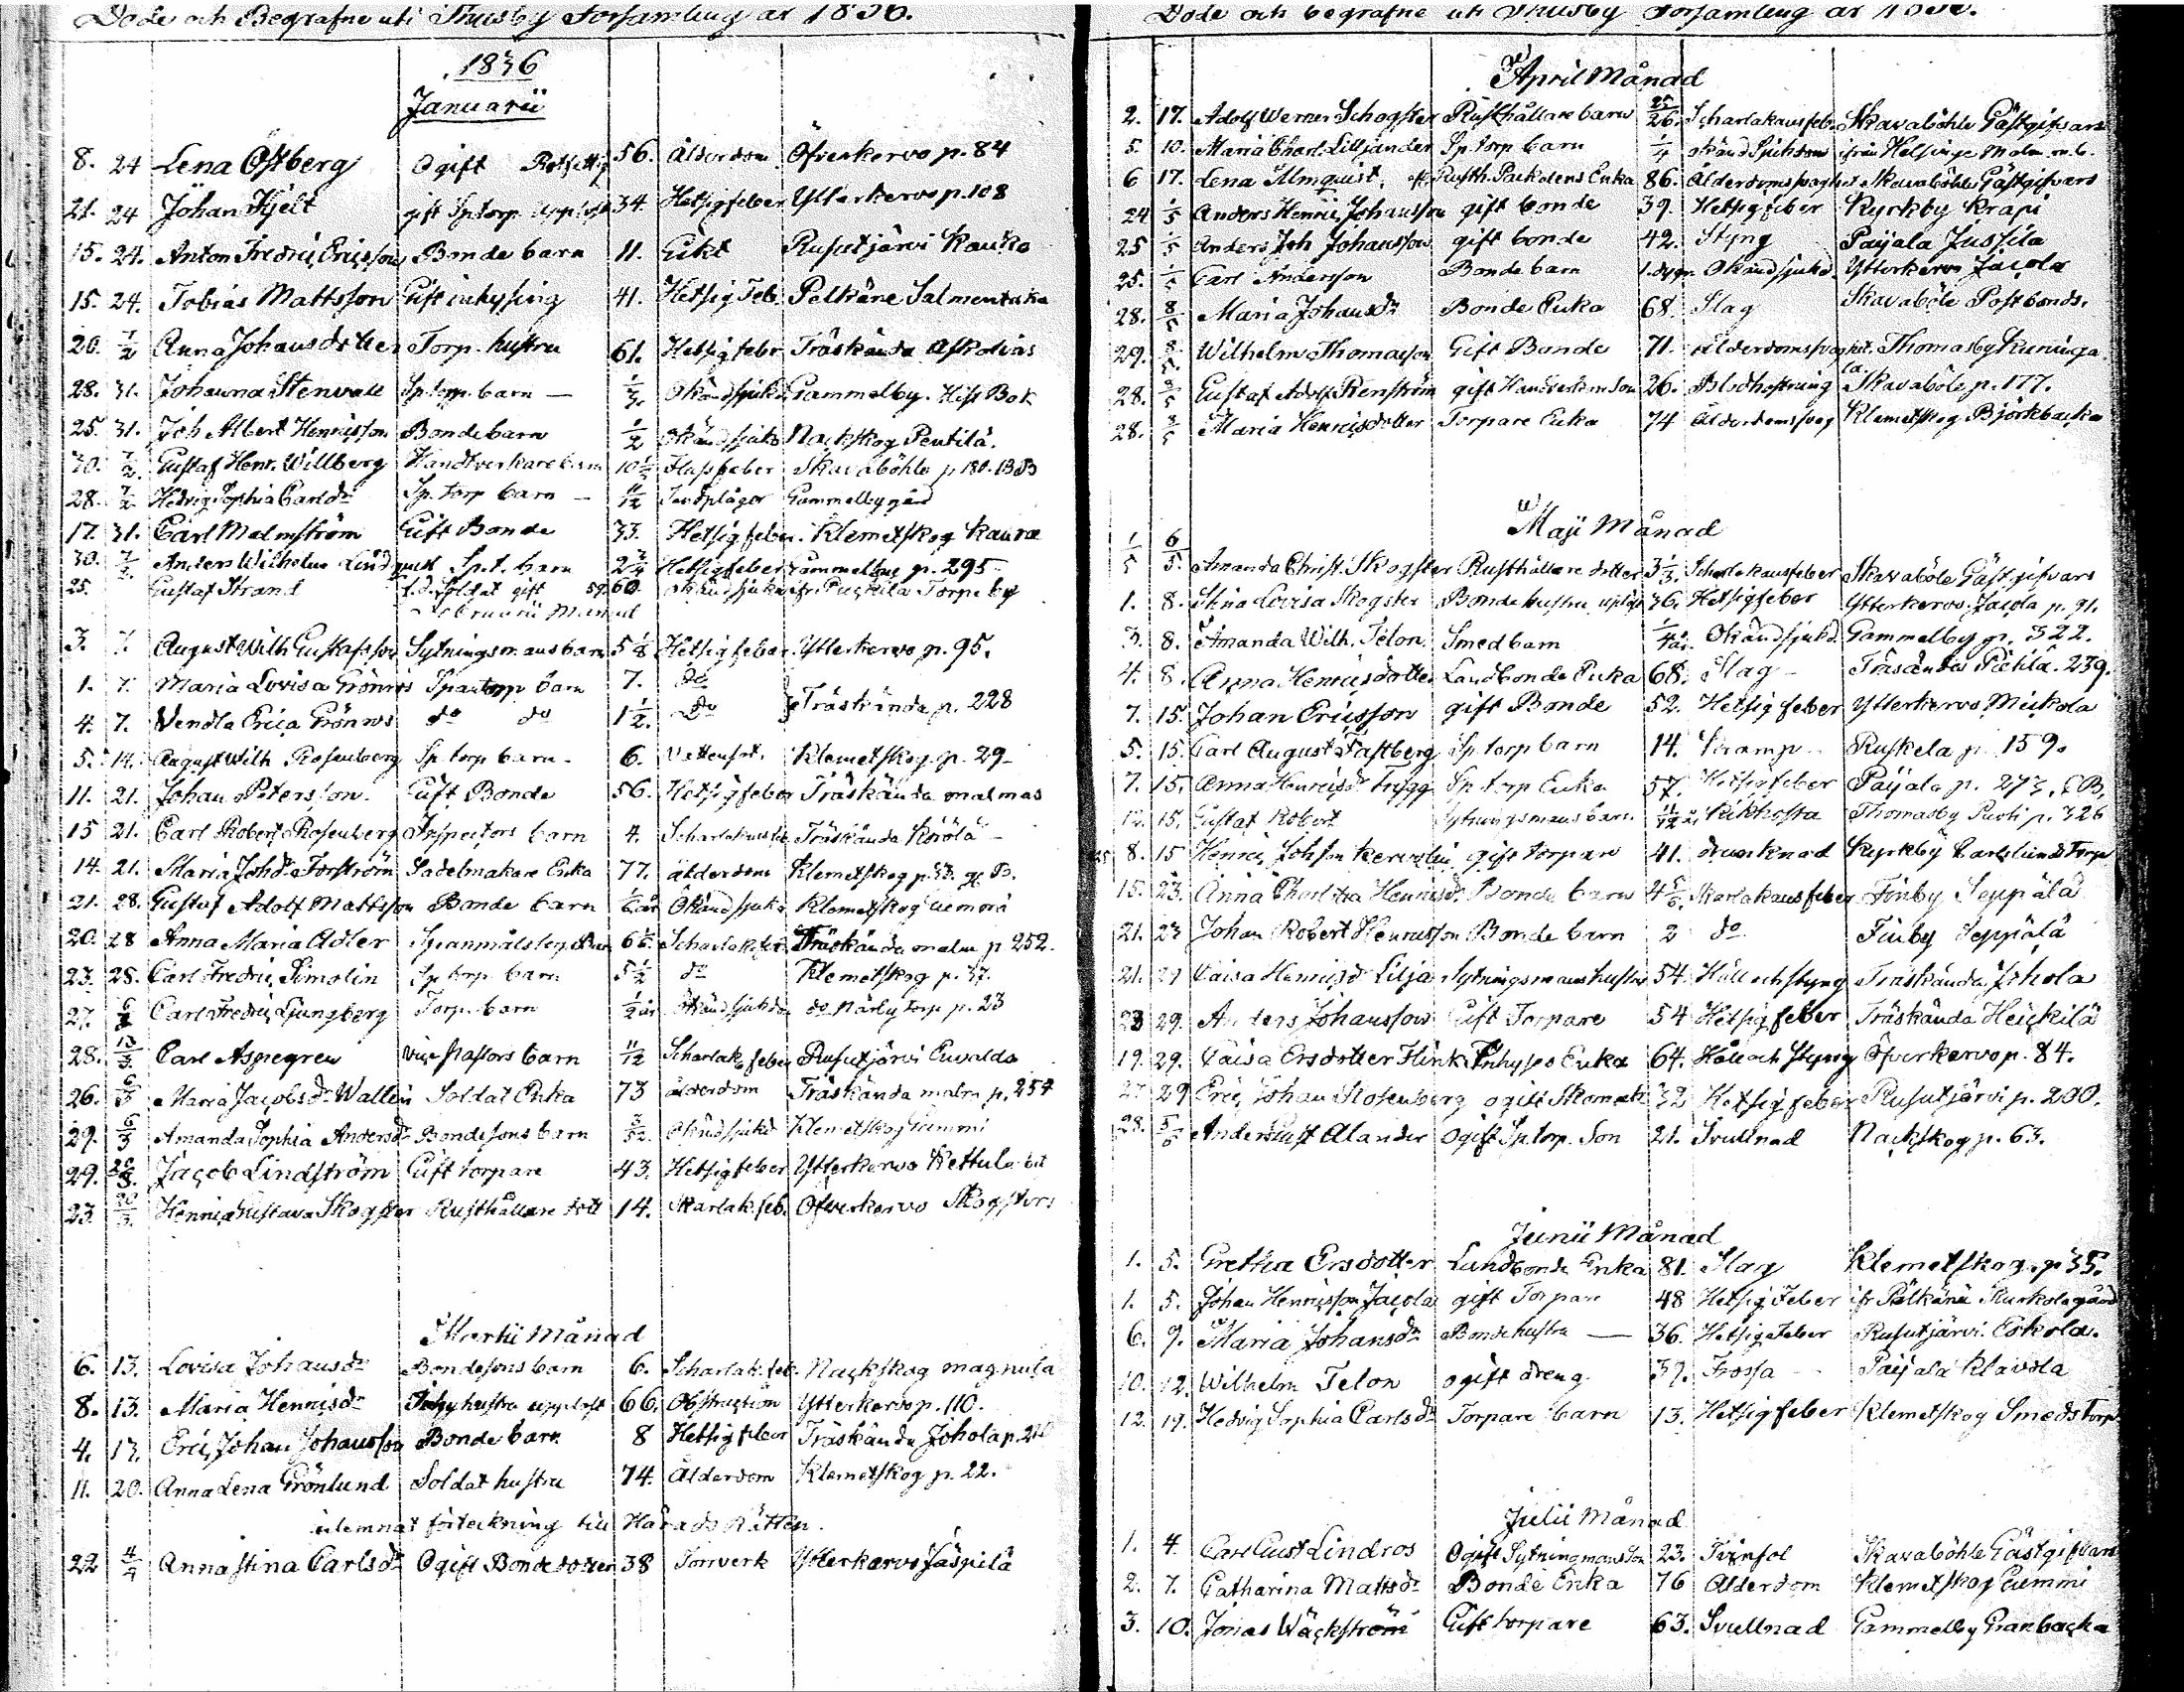 Döde och Begrafne uti Thusby Församling år 1836.
1836
Januarii
8. 24 Lena Östberg Ogift Rotfattig 56. Ålderdom Öfverkervo p. 84
21. 24 Johan Hjelt gift Sp torp 34. Hetsigfeber Ytterkervo p. 108
15. 24. Anton Fredric Ericsson Bonde barn 11. Gikt Rusutjärvi Kauko
15. 24. Tobias Mattsson Gift inhysing 41. Hetsig Feb. Pelkäne Salmentaka
20. 7/2 Anna Johansdotter Torp. hustru 61. Hetsig febr Träskända Askolvas
28. 31. Johanna Stenvall Sp. torp. barn — Okänd sjukd. Gammelby. Hist Bok
25. 31. Joh Albert Henricsson Bonde barn 1/2 Okänd sjukd Nackskog Pentilä.
30. 7/2. Gustaf Henr. Willberg Handtverkare barn 10 1/2 Flassfeber Skavaböhle p. 180. BB
28. 7/2. Hedvig Sophia Carlsdr Sp. torp barn — 11/12 Tandplågor Gammelby gård
17. 31. Carl Malmström Gift Bonde 33. Hetsig feber. Klemetskog Kaura
30. 7/2. Anders Wilhelm Lindquist Sp. t. barn 2 3/4 Hetsigfeber Gammelby p. 295
25. Gustaf Strand f.d. Soldat gift 60. Okänd sjukd fr. Puckila Torpeby
Februarii Månad
3. 7. August Wilh Gustafsson Sytningsmans barn 5 1/8 Hetsigfeber. Ytterkervo p. 95.
1. 7. Maria Lovisa Grönros Spantorp barn 7. do
4. 7. Vendla Erica Grönros do do 1 1/2. Do Träskända p. 228
5. 14. August Wilh Rosenberg Sp. torp barn. 6. Vattensot. Klemetskog p. 29
11. 21. Johan Petersson. Gift Bonde 56. Hetsigfeber Träskända malmas
15 21. Carl Robert Rosenberg Inspectors barn 4. Träskända
14. 21. Maria Johdr Forström Sadelmakare Enka 77. ålderdom Klemetskog p. 33.
21. 28. Gustaf Adolf Mattsson Bonde barn Okänd sjukd Klemetskog
20. 28 Anna Maria Adler 6 1/6. Scharlak. feb Träskända malm p 252.
23. 28. Carl Fredric Simolin Sp torp barn 5 1/2 do Klemetskog p. 37.
27. 6/3 Carl Fredric Ljungberg Torp. barn 1/2 år Okänd sjukdom do Närby torp p. 23
28. 13/3. Carl Aspegren Vice Pastors barn 11/12 Scharlak. feber Rusutjärvi Euvalds
26. 6/3 Maria Jacobsdr Wallen Soldat Enka 73 ålderdom Träskända malm p. 254
29. 6/3 Amanda Sophia Andersdr Bondesons barn 3/52. Okänd sjukd Klemetskog Gummi
29. 20/3. Jacob Lindström Gift torpare 43. Hetsigfeber Ytterkervo Kettula
23. 20/3. Henrica Gustava Skogster Rusthållare dott 14. Skarlak. feb. Öfverkervo Skogsters
Martii Månad
6. 13. Lovisa Johansdr Bondesons barn 6. Scharlak. feb. Nackskog magnula
8. 13. Maria Henricsdr Inhy hustru upplöst 66. Obstruction Ytterkervo p. 110.
4. 13. Eric Johan Johansson Bonde barn 8 Hetsig feber Träskända Johola
11. 20. Anna Lena Grönlund Soldat hustru 74. Ålderdom Klemetskog p. 22.
inlemnat förteckning till Härads Rätten.
22 4/4 Anna Stina Carlsdr Ogift Bonde dotter 38 Torrverk Ytterkervo Jäspilä
Döde och begrafne uti Thusby Församling år 1836.
April Månad
2. 17. Adolf Werner Skogster Rusthållare barn 25/26. Scharlakansfeb. Skavaböhle Gästgifvars
5. 10. Maria Charl. Lilljander Sp. torp barn 1/4 okänd Sjukdom ifrån Helsinge Malm
6 17. Lena Almquist, Rusth. Enka 86. Ålderdomssvaghet Skavaböhle Gästgifvars
24 1/5 Anders Henric Johansson gift bonde 39. Hetsig feber Kyrkby Krapi
25 1/5 Anders Joh Johansson gift bonde 42. Styng Paijala Jussila
25. 1/5 Carl Andersson Bonde barn 1. dygn Okänd sjukd. Ytterkervo Jacola
28. 8/5 Maria Johansdr Bonde Enka 68. Slag Skavaböle Postbonds.
29. 8/5. Wilhelm Thomasson Gift Bonde 71. ålderdomssvaghet. Thomasby Kuninga la.
28. 8/5 Gustaf Adolf Renström gift Handverkare son 26. Blodhostning Skavaböle p. 177.
28. 8/5 Maria Henricsdotter Torpare Enka 74 ålderdomssvag Klemetskog Björkbacka
Maji Månad
1/5 6/5. Amanda Christ. Skogster Rusthållare dotter 3 1/3. Scharlakansfeber Skavaböle Gästgifvars
1. 8. Stina Lovisa Skogster Bonde hustru uplöst 36. Hetsigfeber Ytterkervo, Jacola p. 91.
3. 8. Amanda Wilh. Telon. Smed barn 1/4 år. Okänd sjukd. Gammelby p. 322.
4. 8. Anna Henricsdotter Landbonde Enka 68. Slag Träscända Pichla. 239.
7. 15. Johan Ericsson gift Bonde 52. Hetsig feber Ytterkervo Mickola
5. 15. Carl August Fastberg Sp. torp barn 14. Kramp. Ruskela p. 159.
7. 15. Anna Henricsdr Trygg Sp torp Enka 57. Hetsigfeber Paijala p. 273.
12. 15. Gustaf Robert Sytningsmans barn 11/12 Kikhosta Thomasby p. 326
8. 15 Henric Johsson Kervolin gift torpare 41. drunknad Kyrkby Carlslunds Torp
15. 23. Anna Charlotta Henricsdr Bonde barn 4 5/6. Skarlakansfeber Finby Seppälä
21. 23 Johan Robert Henricsson Bonde barn 2 do Finby Seppälä
21. 29 Caisa Henricsdr Lilja Sytningsmans hustru 54 Håll och styng Träskända Johola
23 29. Anders Johansson Gift Torpare 54 Hetsig feber Träskända Heickilä
19. 29. Caisa Ersdotter Flink Inhyses Enka 64. Håll och Styng Öfverkervo p. 84.
27 29 Eric Johan Rosenberg ogift Skomak 32 Hetsig feber Rusutjärvi p. 200.
28. 5/6 Anders Gust Alander Ogift Sp torp. Son 21. Svullnad Nackskog p. 63.
Junii Månad
1. 5. Gretha Ersdotter Landbonde Enka 81. Slag Klemetskog. p 35.
1. 5. Johan Henricsson Jacola gift Torpare 48 Hetsig Feber fr Pälkänä Kurkola gård
6. 9. Maria Johansdr Bonde hustru — 36. Hetsig Feber Rusutjärvi. Eskola.
10. 12. Wilhelm Telon ogift dreng. 39. Frossa Paijala Klavola
12. 19. Hedvig Sophia Carlsdr Torpare barn 13. Hetsig feber Klemetskog Smeds Torp
Julii Månad
1. 4. Carl Gust Lindros Ogift Sytningmans Son 23. Tvinsot Skavaböhle Gästgifvars
2. 7. Catharina Mattsdr Bonde Enka 76 Ålderdom Klemetskog Gummi
3. 10. Jonas Wäckström Gift torpare 63. Svullnad Gammelby Granbacka